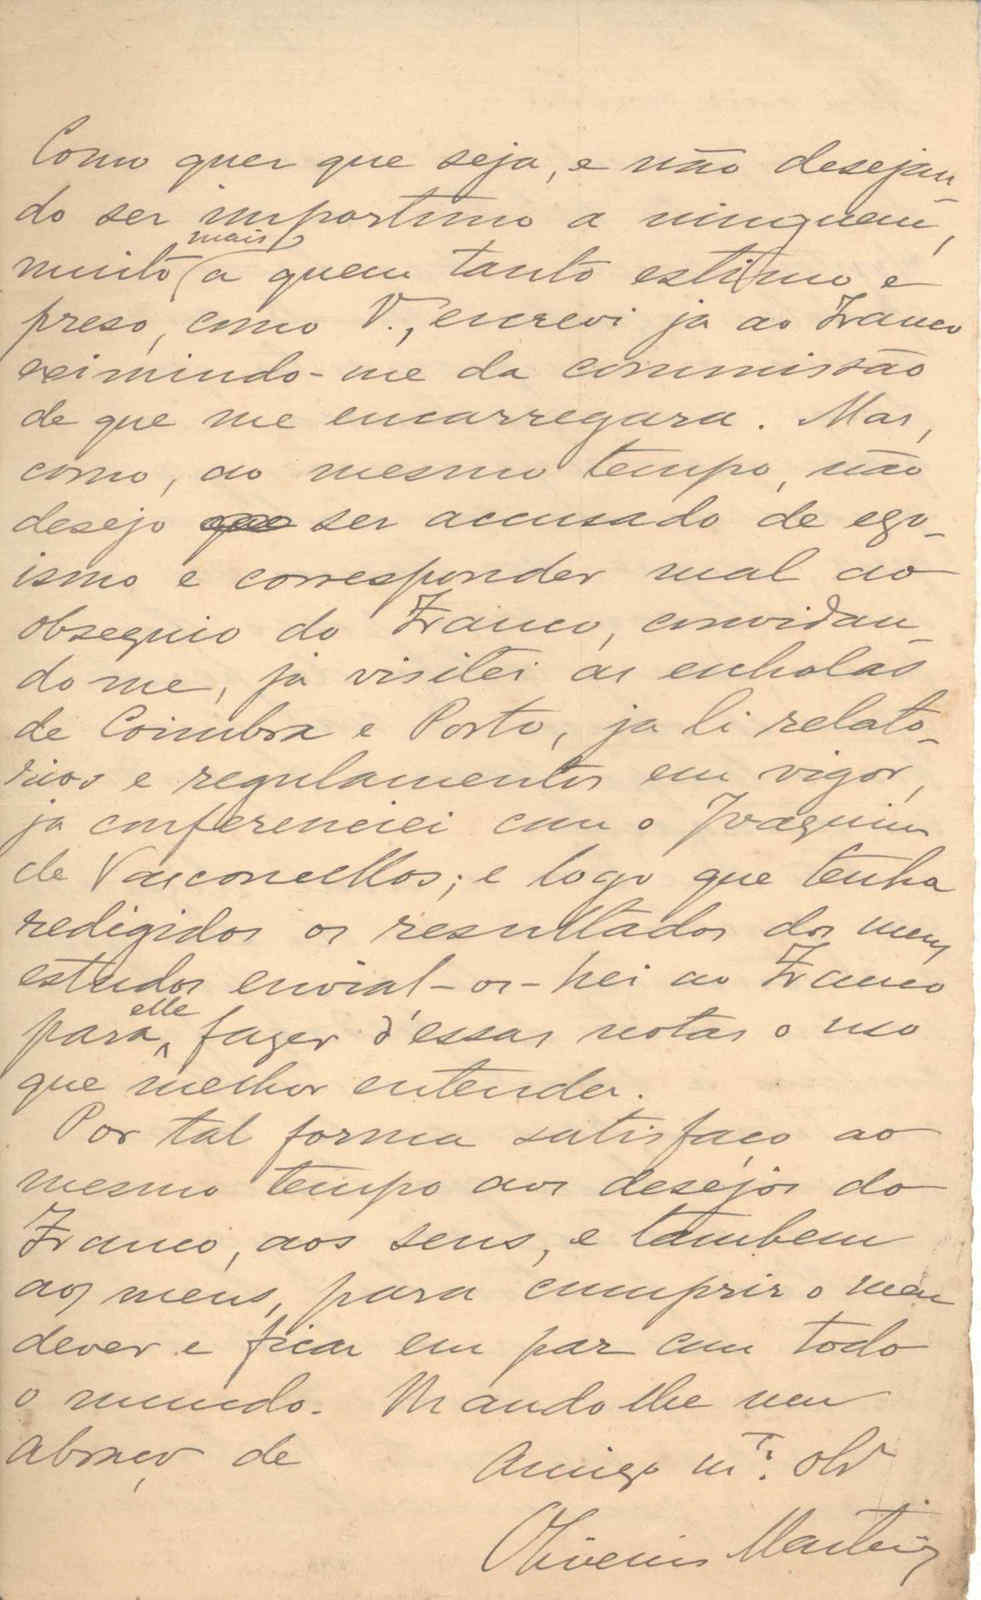 Como quer que seja, e não desejan-
do ser importuno a ninguem,
muito mais a quem tanto estimo e
preso, como V., escrevi ja ao Franco
eximindo-me da commissão
de que me encarregara. Mas,
como, ao mesmo tempo, não
desejo que ser accusado de ego-
ismo e corresponder mal ao
obsequio do Franco, convidan-
do me, ja visitei as escholas
de Coimbra e Porto, ja li relato-
rios e regulamentos em vigor,
ja conferenciei com o Joaquim
de Vasconcellos; e logo que tenha
redigidos os resultados dos meus
estudos envial-os-hei ao Franco
para elle fazer d'essas notas o uso
que melhor entender.
Por tal forma satisfaço ao
mesmo tempo aos desejos do
Franco, aos seus, e tambem
aos meus, para cumprir o meu
dever e ficar em paz com todo
o mundo. Mando lhe um
abraço de
Amigo mto. obr
Oliveira Martins